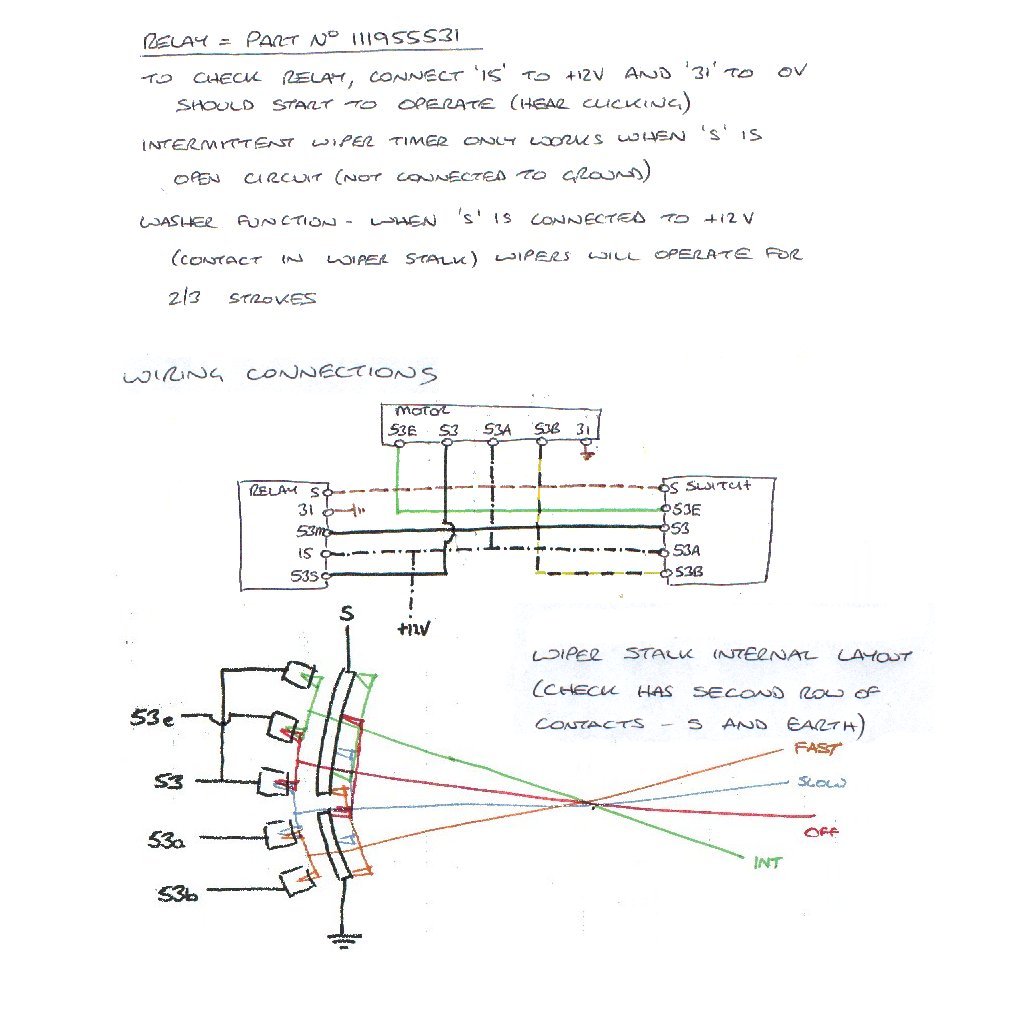 RELAY = PART Nº 111955531
TO CHECK RELAY, CONNECT '15' TO +12V AND '31' TO 0V
SHOULD START TO OPERATE (HEAR CLICKING)
INTERMITTENT WIPER TIMER ONLY WORKS WHEN 'S' IS
OPEN CIRCUIT (NOT CONNECTED TO GROUND)
WASHER FUNCTION - WHEN 'S' IS CONNECTED TO +12V
(CONTACT IN WIPER STALK) WIPERS WILL OPERATE FOR
2/3 STROKES
WIRING CONNECTIONS
MOTOR
53E 53 53A 53B 31
RELAY S
31
53M
15
53S
S SWITCH
53E
53
53A
53B
+12V
S
WIPER STALK INTERNAL LAYOUT
(CHECK HAS SECOND ROW OF
CONTACTS - S AND EARTH)
53e
53
53a
53b
FAST
SLOW
OFF
INT